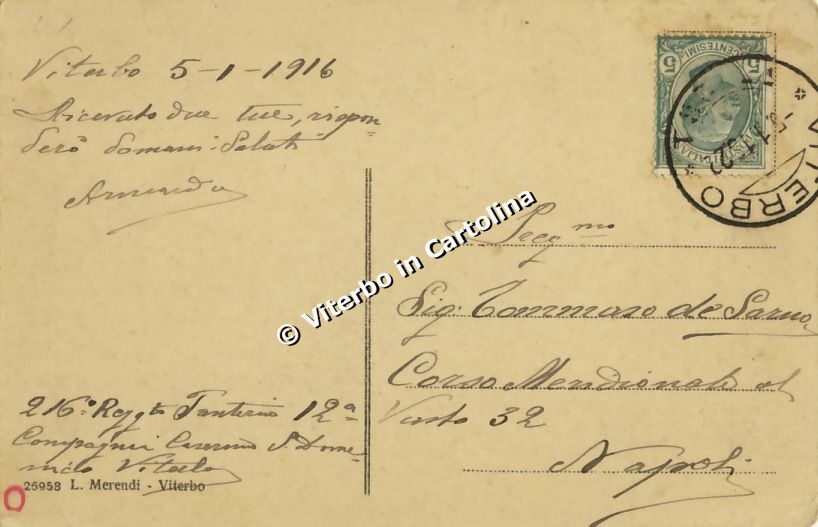 Viterbo 5-1-1916
Ricevuto due tue, rispon
derò domani. Saluti
Armando
216º Reggto Fanteria 12ª
Compagnia Caserma S. Dome-
nico Viterbo
25958 L. Merendi - Viterbo
© Viterbo in Cartolina
CENTESIMI
5 5
VITERBO
Preg.mo
Sig. Tommaso de Sarno
Corso Meridionale al
Vasto 32
Napoli